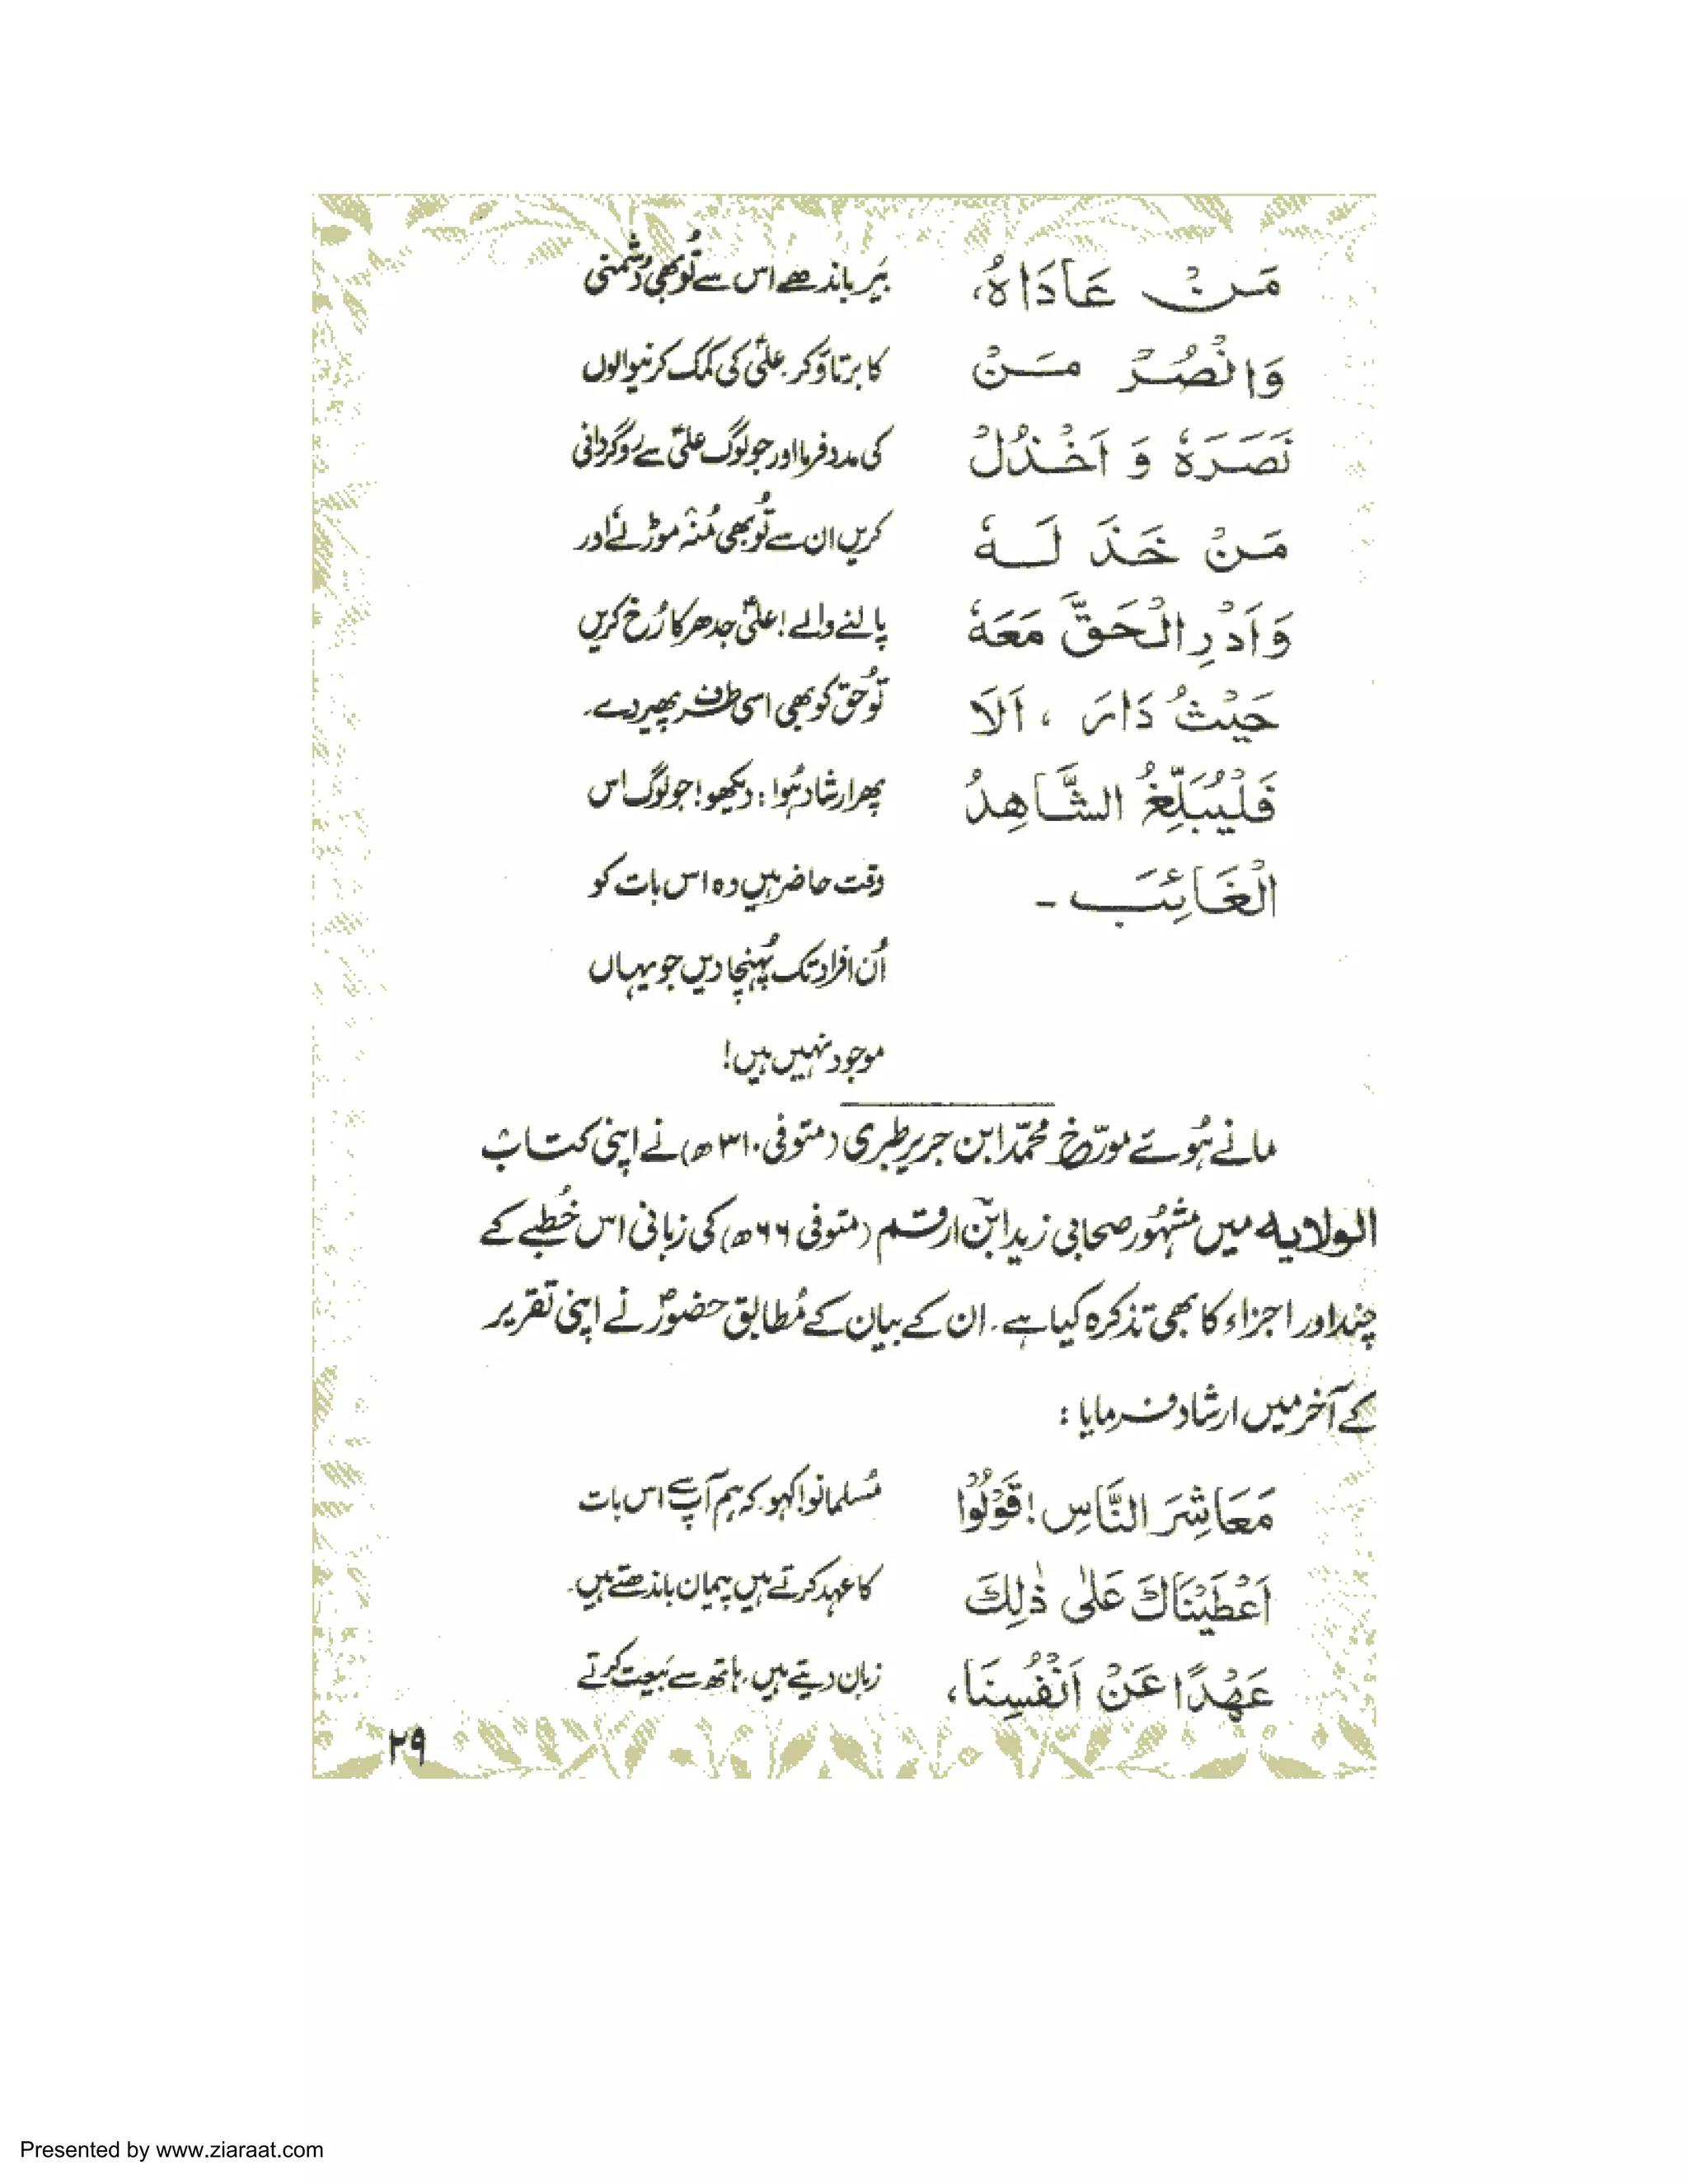 مَنْ عَادَاهُ،
وَانْصُرْ مَنْ
نَصَرَهٗ وَ اَخْذُلْ
مَنْ خَذَ لَهٗ
وَاَدْرِ الْحَقَّ مَعَهٗ
حَيْثُ دَارَ ، اَلَا
فَلْيُبَلِّغُ الشَّاهِدُ
الْغَائِبَ -
بَیر باندھے اس سے تُو بھی دشمنی
کا برتاؤ کر. علیؑ کی کمک کرنیوالوں
کی مدد فرما اور جو لوگ علیؑ سے رُوگردانی
کریں ان سے تُو بھی مُنہ موڑ لے اور
پالنے والے! علیؑ جدھر کا رُخ کریں
تُو حق کو بھی اسی طرف پھیر دے.
پھر ارشاد ہُوا : دیکھو! جو لوگ اس
وقت حاضر ہیں وہ اس بات کو
اُن افراد تک پہُنچا دیں جو یہاں
موجود نہیں ہیں!
مانے ہُوئے مورّخ محمّد ابن جریر طبری (متوفی ۳۱۰ھ) نے اپنی کتابُ
الولایہ میں مشہُور صحابی زید ابنؓ ارقم (متوفی ۶۶ھ) کی زبانی اس خُطبے کے
چند اور اجزاء کا بھی تذکرہ کیا ہے. ان کے بیان کے مُطابق حضورؐ نے اپنی تقریر
کے آخر میں ارشاد فرمایا :
مَعَاشِرَ النَّاسِ! قُوْلُوْا
اَعْطَيْنَاكَ عَلٰى ذٰلِكَ
عَهْدًا عَنْ اَنْفُسِنَا،
مُسلمانو! کہو. کہ ہم آپؐ سے اس بات
کا عہد کرتے ہیں پیمان باندھتے ہیں.
زبان دیتے ہیں، ہاتھ سے بَیعت کرتے
۲۹
Presented by www.ziaraat.com